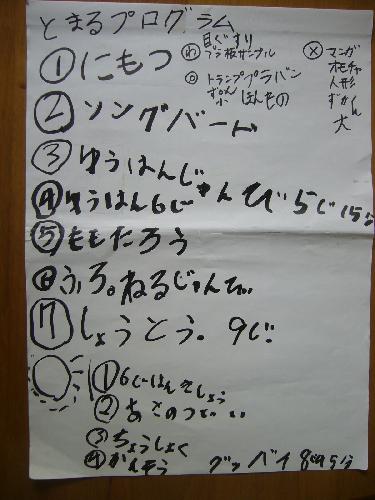 とまるプログラム
わ 目ぐすり
プラ板サンプル
○ トランププラバン
ずかん ほんもの
小
× マンガ
オモチャ
人形
ずかん
大
①にもつ
②ソングバード
③ゆうはんじ
④ゆうはん6じ じゅんび5じ15分
⑤ももたろう
⑥ふろ。ねるじゅんび
⑦しょうとう。9じ
①6じはんきしょう
②あさのつどい
③ちょうしょく
④かんそう
グッバイ8時45分